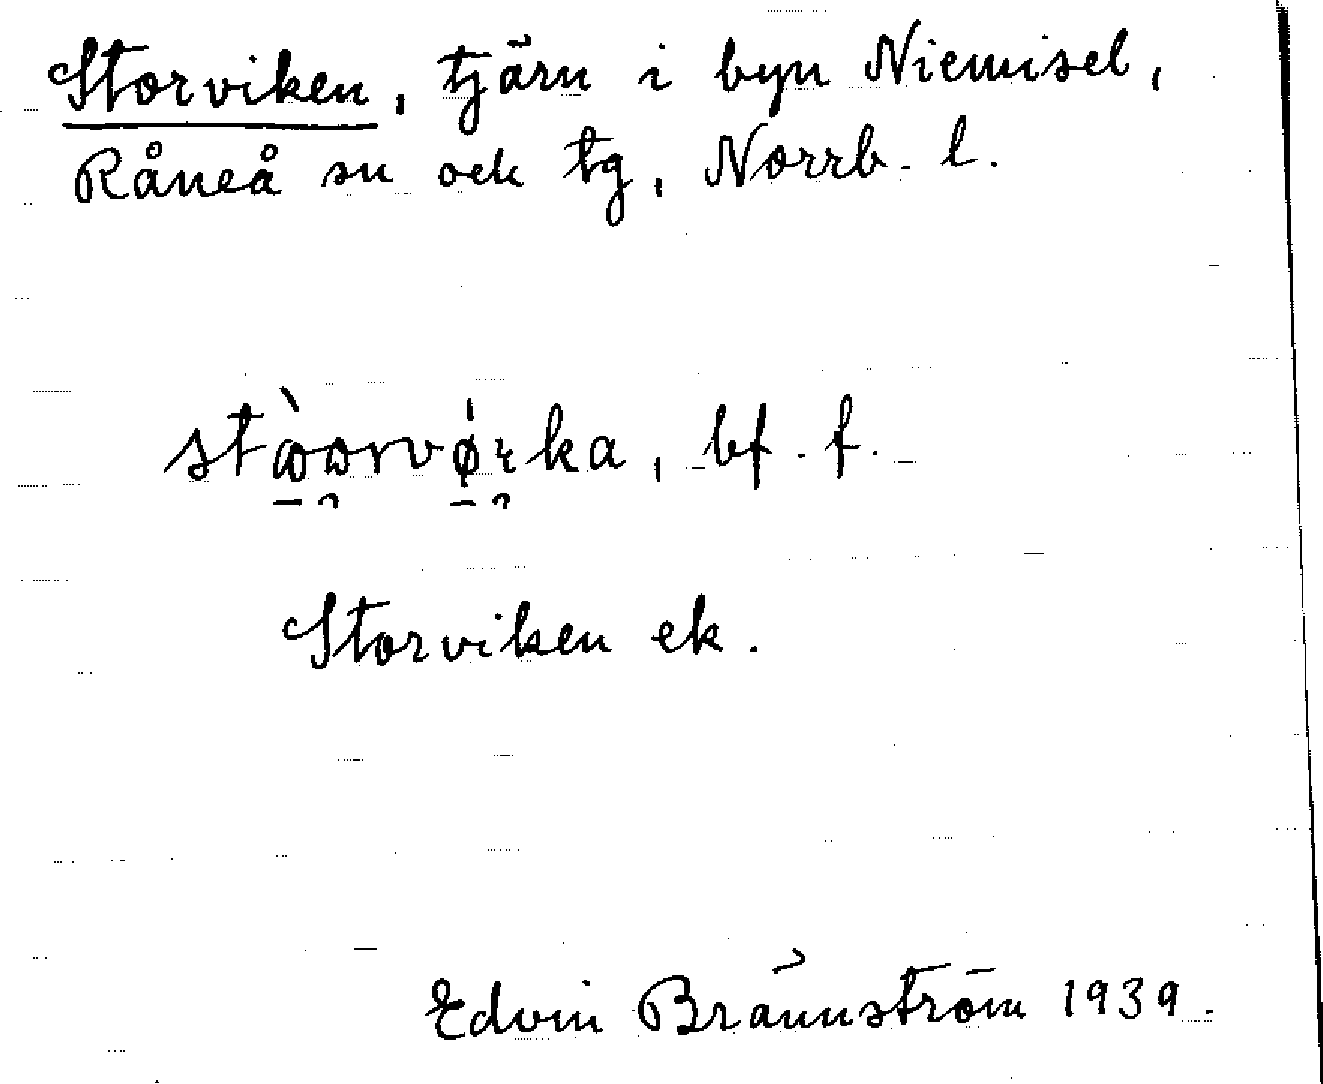 Storviken, tjärn i byn Niemisel,
Råneå sn ock tg, Norrb. l.
stòorvø̀ɪka, bf. f.
Storviken ek.
Edvin Brännström 1939.